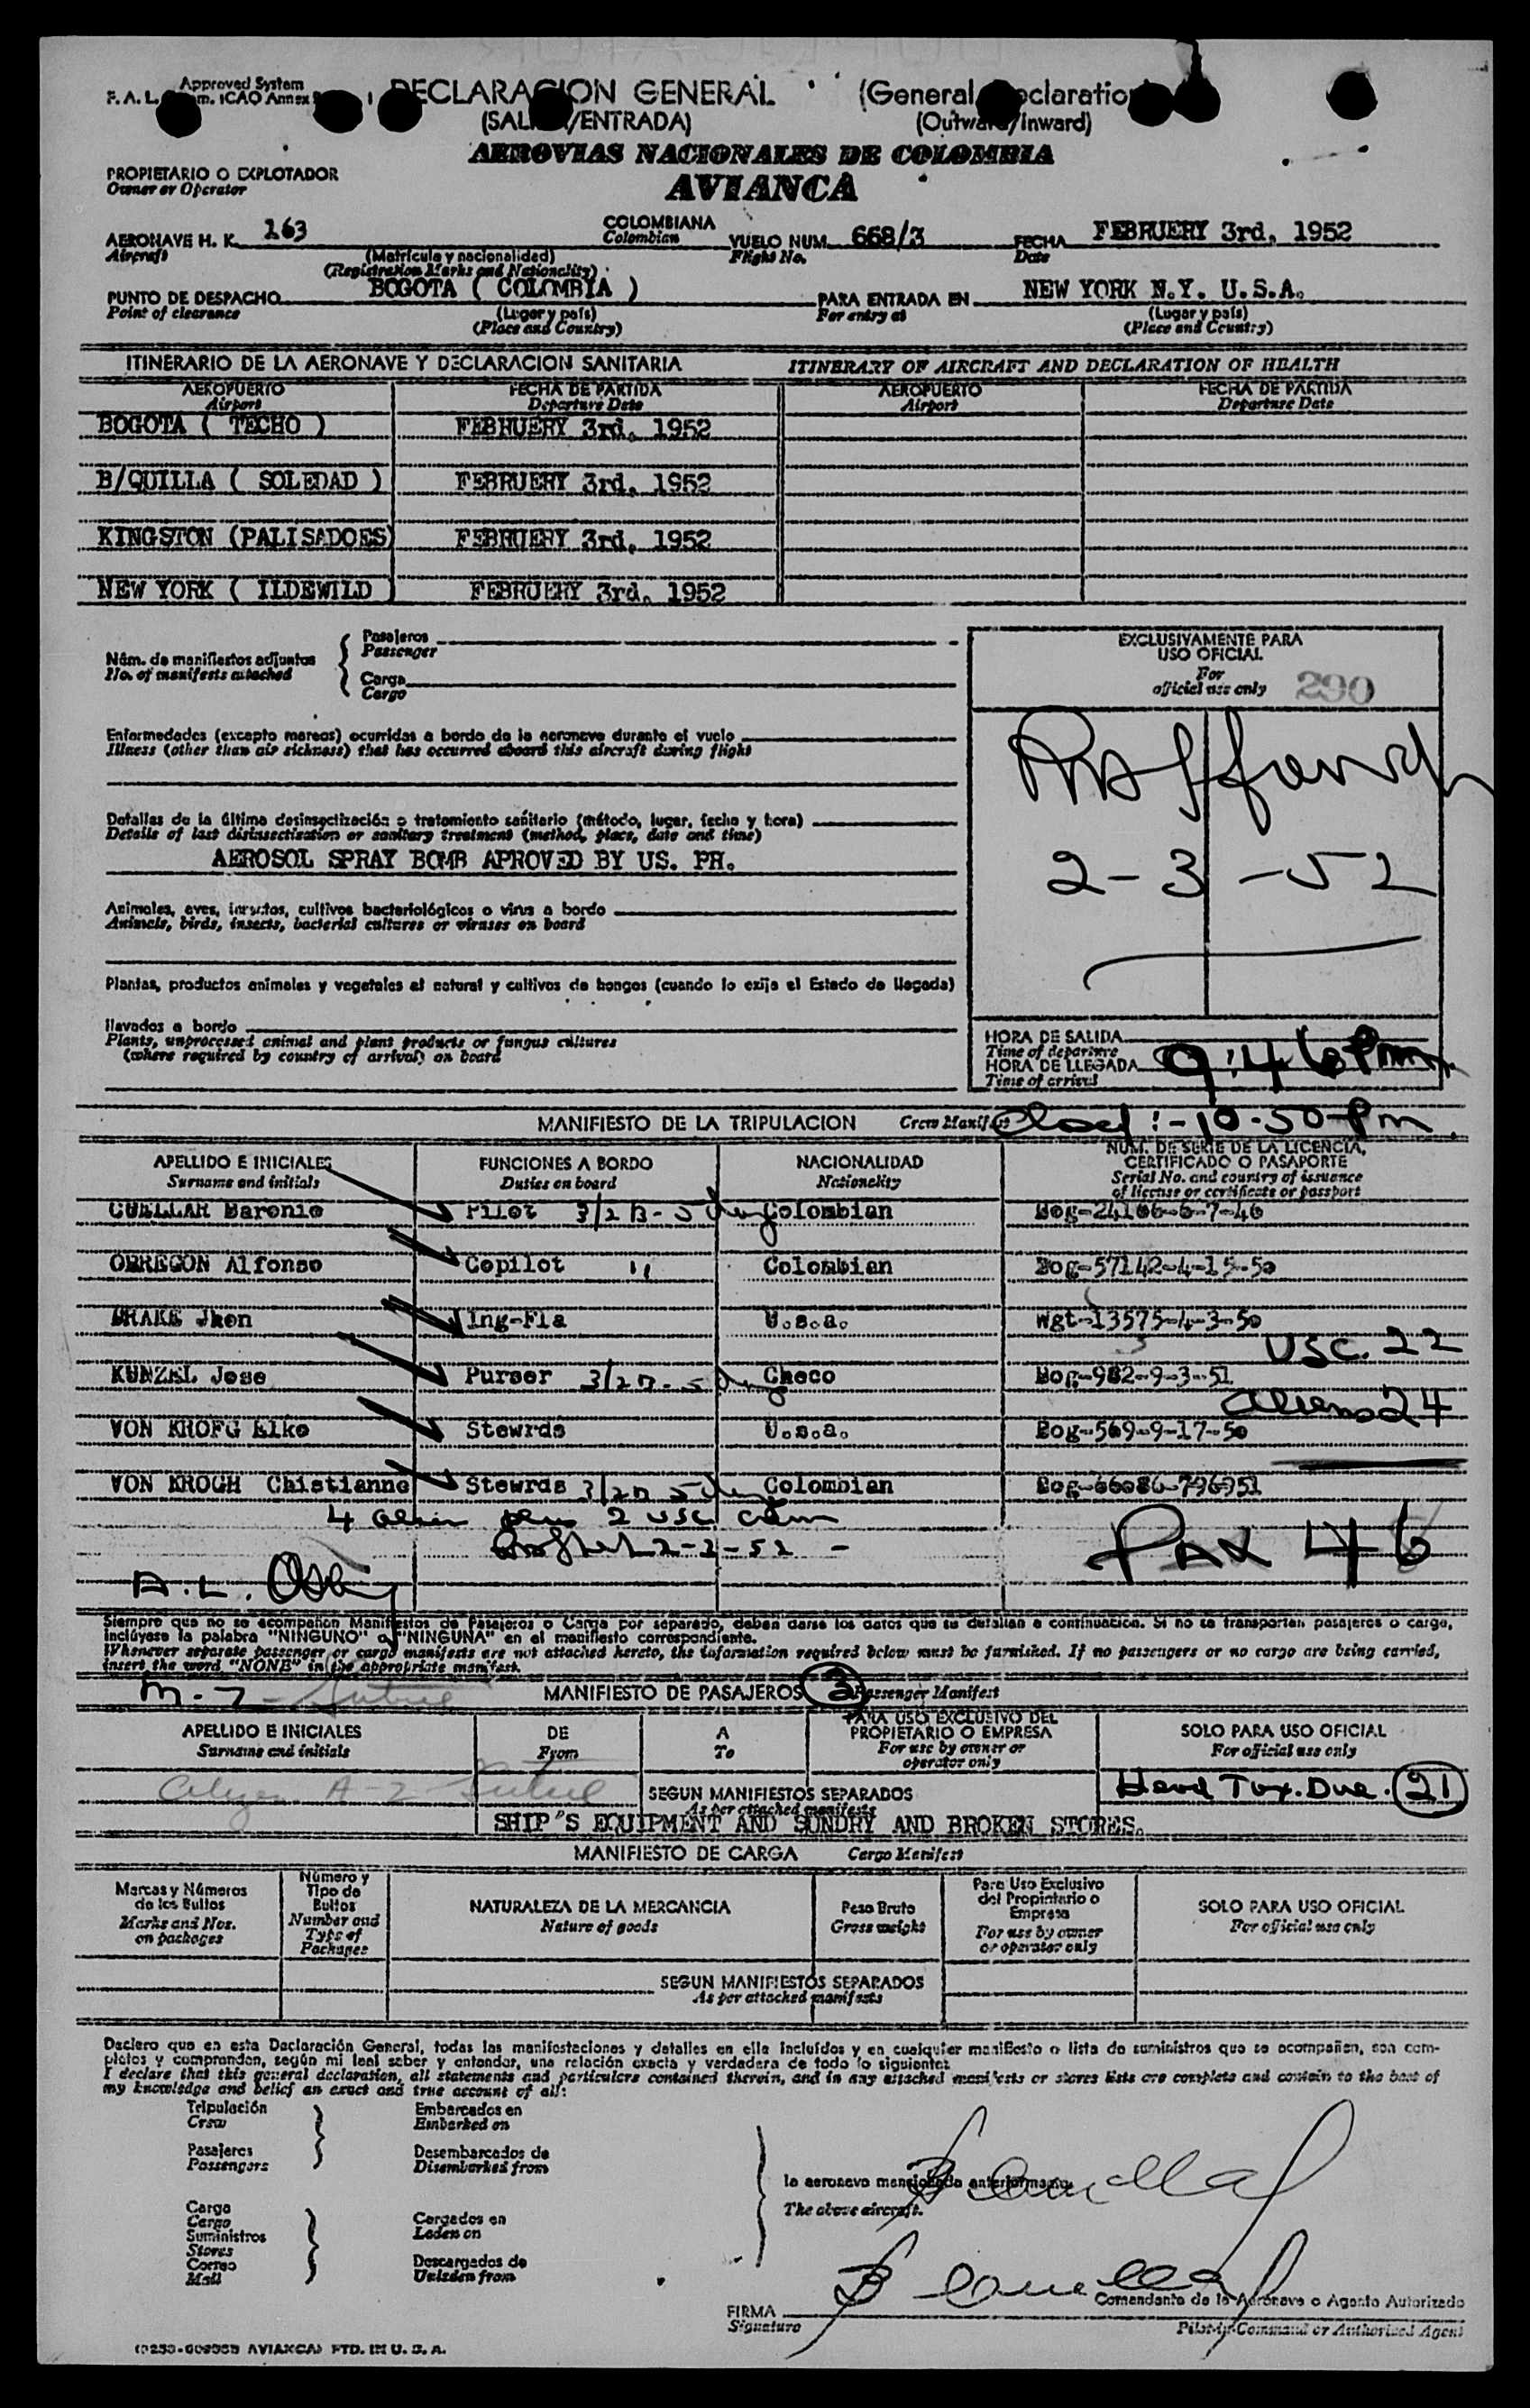 Approved System
F. A. L. m. ICAO Annex
DECLARACION GENERAL (General Declaration
(SALIDA/ENTRADA) (Outward/Inward)
AEROVIAS NACIONALES DE COLOMBIA
PROPIETARIO O EXPLOTADOR
Owner or Operator
AVIANCA
AERONAVE H. K. 163 COLOMBIANA VUELO NUM. 668/3 FECHA FEBRUERY 3rd, 1952
Aircraft Colombian Flight No. Date
(Matrícula y nacionalidad)
(Registration Marks and Nationality)
PUNTO DE DESPACHO BOGOTA ( COLOMBIA ) PARA ENTRADA EN NEW YORK N.Y. U.S.A.
Point of clearance (Lugar y país) For entry at (Lugar y país)
(Place and Country) (Place and Country)
ITINERARIO DE LA AERONAVE Y DECLARACION SANITARIA ITINERARY OF AIRCRAFT AND DECLARATION OF HEALTH
AEROPUERTO FECHA DE PARTIDA AEROPUERTO FECHA DE PARTIDA
Airport Departure Date Airport Departure Date
BOGOTA ( TECHO ) FEBRUERY 3rd, 1952
B/QUILLA ( SOLEDAD ) FEBRUERY 3rd, 1952
KINGSTON (PALISADOES) FEBRUERY 3rd, 1952
NEW YORK ( ILDEWILD ) FEBRUERY 3rd, 1952
Núm. de manifiestos adjuntos
No. of manifests attached
Pasajeros
Passenger
Carga
Cargo
EXCLUSIVAMENTE PARA
USO OFICIAL
For
official use only 290
Enfermedades (excepto mareos) ocurridas a bordo de la aeronave durante el vuelo
Illness (other than air sickness) that has occurred aboard this aircraft during flight
Detallas de la última desinsectización o tratamiento sanitario (método, lugar, fecha y hora)
Details of last disinsectization or sanitary treatment (method, place, date and time)
AEROSOL SPRAY BOMB APROVED BY US. PH.
2-3-52
Animales, aves, insectos, cultivos bacteriológicos o virus a bordo
Animals, birds, insects, bacterial cultures or viruses on board
Plantas, productos animales y vegetales al natural y cultivos de hongos (cuando lo exija el Estado de llegada)
llevados a bordo
Plants, unprocessed animal and plant products or fungus cultures
(where required by country of arrival) on board
HORA DE SALIDA
Time of departure
HORA DE LLEGADA 9:46 Pm
Time of arrival
MANIFIESTO DE LA TRIPULACION Crew Manifest :-10-50-Pm
APELLIDO E INICIALES FUNCIONES A BORDO NACIONALIDAD NUM. DE SERIE DE LA LICENCIA, CERTIFICADO O PASAPORTE
Surname and initials Duties on board Nationality Serial No. and country of issuance of license or certificate or passport
CUELLAR Baronio Pilot Colombian Bog-24166-6-7-46
OBREGON Alfonso Copilot " Colombian Bog-57142-4-15-50
DRAKE Jhon Ing-Fla U.s.a. wgt-13575-4-3-50
USC. 22
KUNZEL Jose Purser Checo Bog-982-9-3-51
Aliens 24
VON KROFG Elke Stewrds U.s.a. Bog-569-9-17-50
VON KROGH Chistianne Stewrds Colombian
4 alien plus 2 USC crew
PAX 46
Siempre que no se acompañan Manifiestos de Pasajeros o Carga por separado, deben darse los datos que se detallan a continuación. Si no se transportan pasajeros o carga,
inclúyase la palabra "NINGUNO" o "NINGUNA" en el manifiesto correspondiente.
Whenever separate passenger or cargo manifests are not attached hereto, the information required below must be furnished. If no passengers or no cargo are being carried,
insert the word "NONE" in the appropriate manifest.
MANIFIESTO DE PASAJEROS Passenger Manifest
APELLIDO E INICIALES DE A PARA USO EXCLUSIVO DEL PROPIETARIO O EMPRESA SOLO PARA USO OFICIAL
Surname and initials From To For use by owner or operator only For official use only
SEGUN MANIFIESTOS SEPARADOS Head Tax Due. 21
As per attached manifests
SHIP'S EQUIPMENT AND SUNDRY AND BROKEN STORES.
MANIFIESTO DE CARGA Cargo Manifest
Marcas y Números de los Bultos Número y Tipo de Bultos NATURALEZA DE LA MERCANCIA Peso Bruto Para Uso Exclusivo del Propietario o Empresa SOLO PARA USO OFICIAL
Marks and Nos. on packages Number and Type of Packages Nature of goods Gross weight For use by owner or operator only For official use only
SEGUN MANIFIESTOS SEPARADOS
As per attached manifests
Declaro que en esta Declaración General, todas las manifestaciones y detalles en ella incluídos y en cualquier manifiesto o lista de suministros que se acompañen, son com-
pletos y comprenden, según mi leal saber y entender, una relación exacta y verdadera de todo lo siguiente:
I declare that this general declaration, all statements and particulars contained therein, and in any attached manifests or stores lists are complete and contain to the best of
my knowledge and belief an exact and true account of all:
Tripulación Embarcados en
Crew Embarked on
Pasajeros Desembarcados de
Passengers Disembarked from
la aeronave mencionada anteriormente.
The above aircraft.
Carga
Cargo Cargados en
Suministros Laden on
Stores
Correo Descargados de
Mail Unladen from
Comandante de la Aeronave o Agente Autorizado
FIRMA
Signature Pilot-in-Command or Authorized Agent
AVIANCA) PTD. IN U. S. A.